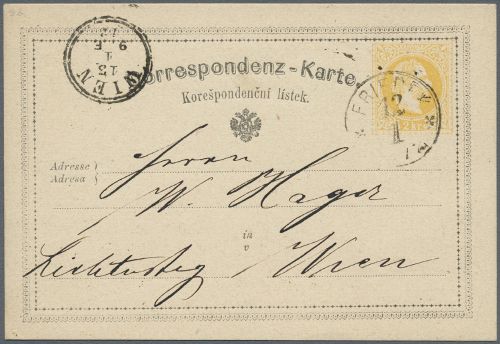 WIEN
13
1
9-F
Correspondenz-Karte.
Korešpondenční lístek.
FRIEDEK
12
1
Adresse
Adresa
Herrn
W. Hager
in
v
Wien